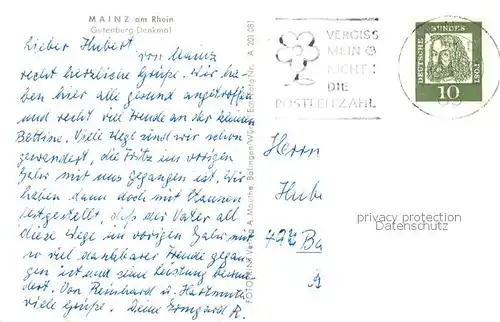 MAINZ am Rhein
Gutenberg-Denkmal
Lieber Hubert,
von Mainz
recht herzliche Grüße. Wir ha-
ben hier alle gesund angetroffen
und recht viel Freude an der kleinen
Bettina. Viele Wege sind wir schon
gewandert, die Fritz im vorigen
Jahr mit uns gegangen ist. Wir
haben dann doch mit Staunen
festgestellt, daß der Vater all
diese Wege im vorigen Jahr mit
so viel dankbarer Freude gegan-
gen ist und seine Leistung bewun-
dert. Von Reinhard u. Hartmut
viele Grüße. Deine Irmgard R.
A. Mauthe, Balingen/Württ.
A 201 081
VERGISS
MEIN
NICHT
DIE
POSTLEITZAHL
DEUTSCHE BUNDESPOST
10
Herrn
Hube
Ba
privacy protection
Datenschutz